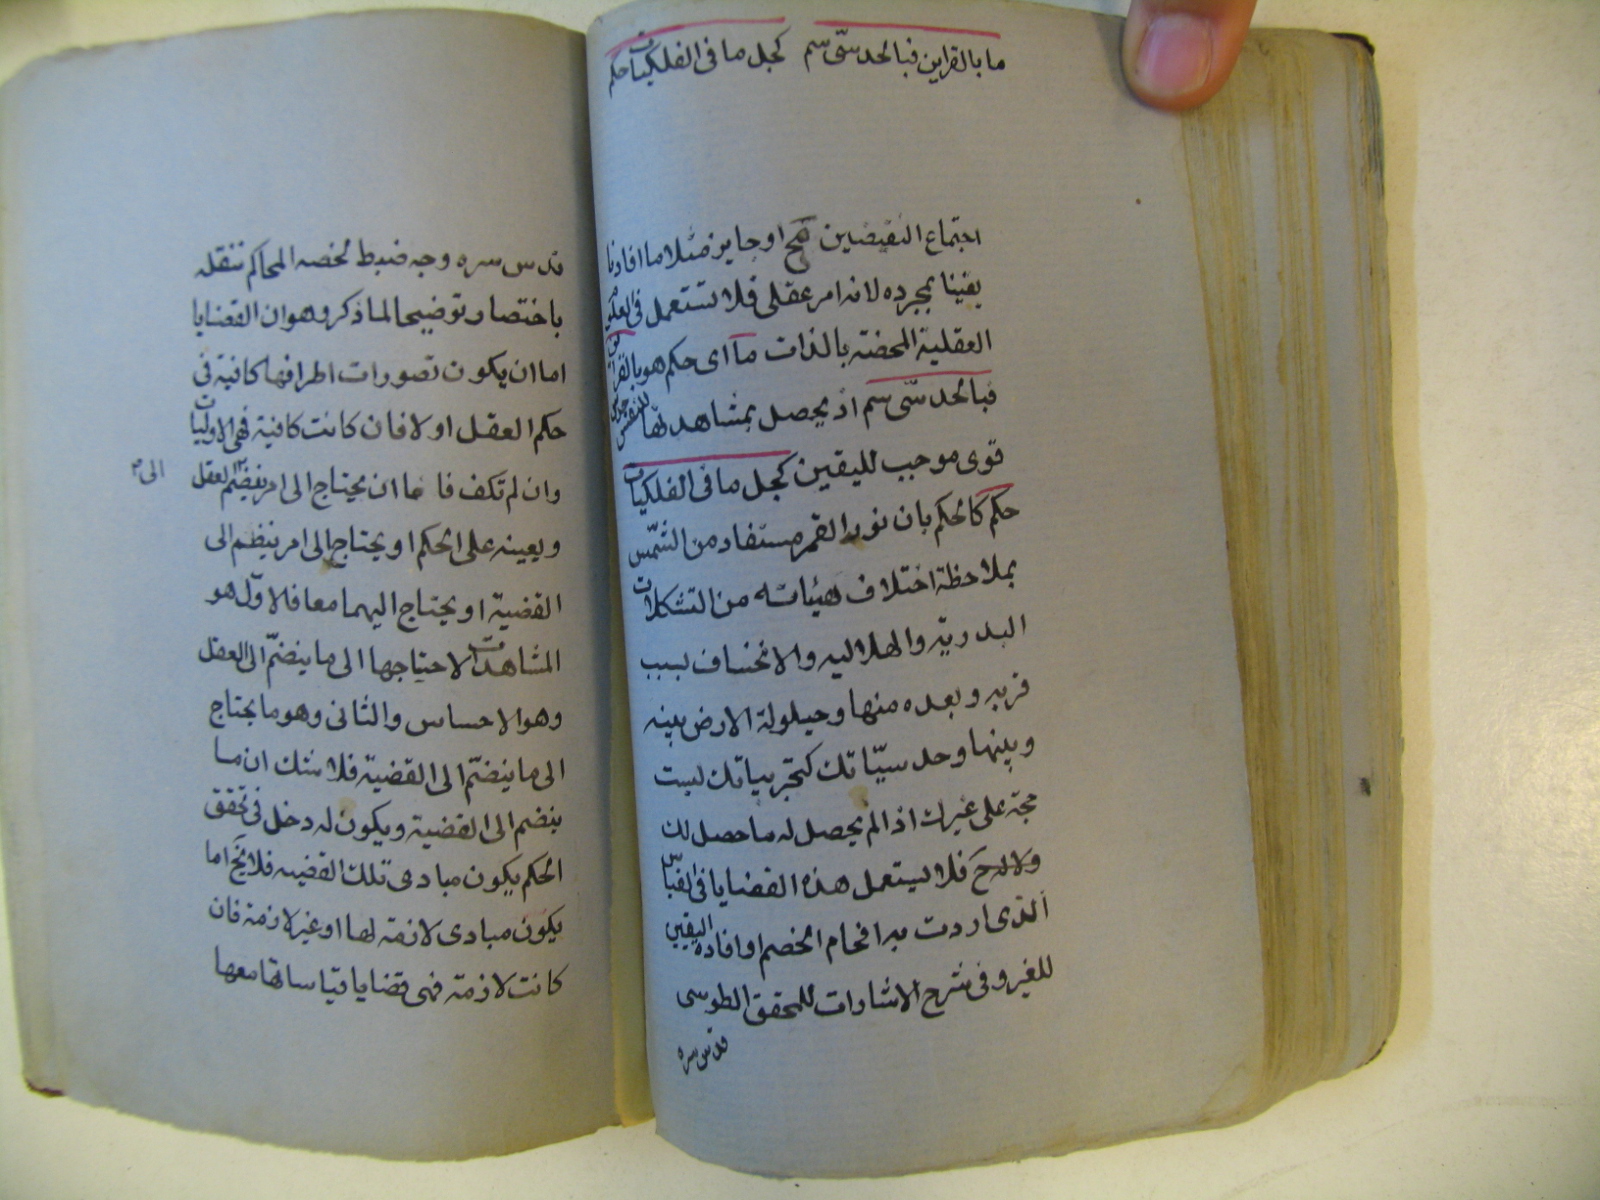 ما بالقراين فبالحدسی سم کجل ما فی الفلکیات حکم
اجتماع النقیضین مح او جایز مثلا ما افادنا
یقینا بمجرده لانه امر عقلی فلا تستعمل فی العلوم
العقلیة المحضة بالذات ما ای حکم هو بالقراین
فبالحدسی سم اذ یحصل بمشاهدتها للنفس حدس
قوی موجب للیقین کجل ما فی الفلکیات
حکم کالحکم بان نور القمر مستفاد من الشمس
بملاحظة اختلاف هیئاته من التشکلات
البدریة والهلالیه والانخساف بسبب
قربه وبعده منها وحیلولة الارض بینه
وبینها وحدسیّاتک کتجربیاتک لیست
حجة علی غیرک اذا لم یحصل له ما حصل لک
ولا لدح فلا یستعمل هذه القضایا فی القیاس
الذی اردت به افحام الخصم او افاده الیقین
للغیر وفی شرح الاشارات للمحقق الطوسی
قدس سره
قدس سره وجه ضبط لخصه المحاکم ننقله
باختصار وتوضیحا لما ذکر وهو ان القضایا
اما ان یکون تصورات اطرافها کافیة فی
حکم العقل او لا فان کانت کافیة فهی الاولیات
وان لم تکف فاما ان یحتاج الی امر ینضم العقل
الی
ویعینه علی الحکم او یحتاج الی امر ینظم الی
القضیة او یحتاج الیهما معا فالاوّل هو
المشاهدات لاحتیاجها الی ما ینضمّ الی العقل
وهو الاحساس والثانی وهو ما یحتاج
الی ما ینضمّ الی القضیة فلا شک ان ما
ینضم الی القضیة ویکون له دخل فی تحقق
الحکم یکون مبادی تلک القضیه فلا یخ اما
یکون مبادی لازمة لها او غیر لازمة فان
کانت لازمة فهی قضایا قیاساتها معها